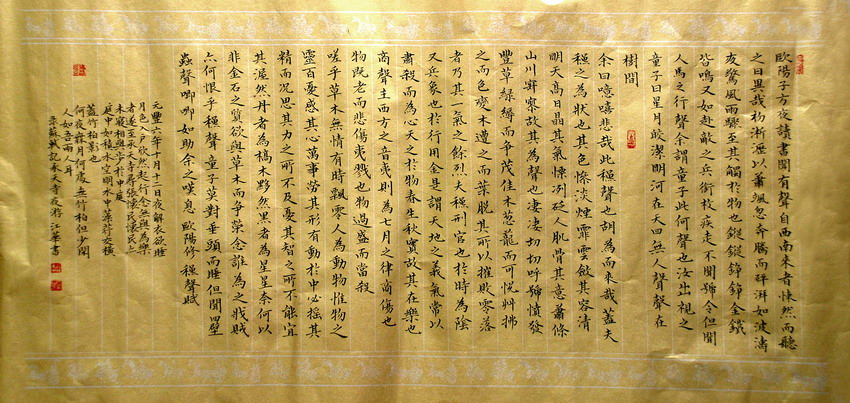 歐陽子方夜讀書聞有聲自西南來者悚然而聽
之曰異哉初淅瀝以蕭颯忽奔騰而砰湃如波濤
夜驚風雨驟至其觸於物也鏦鏦錚錚金鐵
皆鳴又如赴敵之兵銜枚疾走不聞號令但聞
人馬之行聲余謂童子此何聲也汝出視之
童子曰星月皎潔明河在天四無人聲聲在
樹間
余曰噫嘻悲哉此秋聲也胡為而來哉蓋夫
秋之為狀也其色慘淡煙霏雲斂其容清
明天高日晶其氣慄冽砭人肌骨其意蕭條
山川寂寥故其為聲也淒淒切切呼號憤發
豐草綠縟而爭茂佳木蔥蘢而可悅艸拂
之而色變木遭之而葉脫其所以摧敗零落
者乃其一氣之餘烈夫秋刑官也於時為陰
又兵象也於行用金是謂天地之義氣常以
肅殺而為心天之於物春生秋實故其在樂也
商聲主西方之音夷則為七月之律商傷也
物既老而悲傷夷戮也物過盛而當殺
嗟乎草木無情有時飄零人為動物惟物之
靈百憂感其心萬事勞其形有動於中必搖其
精而況思其力之所不及憂其智之所不能宜
其渥然丹者為槁木黟然黑者為星星奈何以
非金石之質欲與草木而爭榮念誰為之戕賊
亦何恨乎秋聲童子莫對垂頭而睡但聞四壁
蟲聲唧唧如助余之嘆息 歐陽修 秋聲賦
元豐六年十月十二日夜解衣欲睡
月色入戶欣然起行念無與為樂
者遂至承天寺尋張懷民懷民亦
未寢相與步於中庭
庭中如積水空明水中藻荇交橫
蓋竹柏影也
何夜無月何處無竹柏但少閑
人如吾兩人耳
宋蘇軾記承天寺夜游 江華書